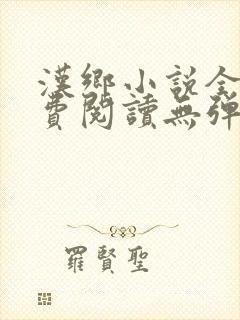 漢鄉小說全
費閱讀無彈
羅賢聖